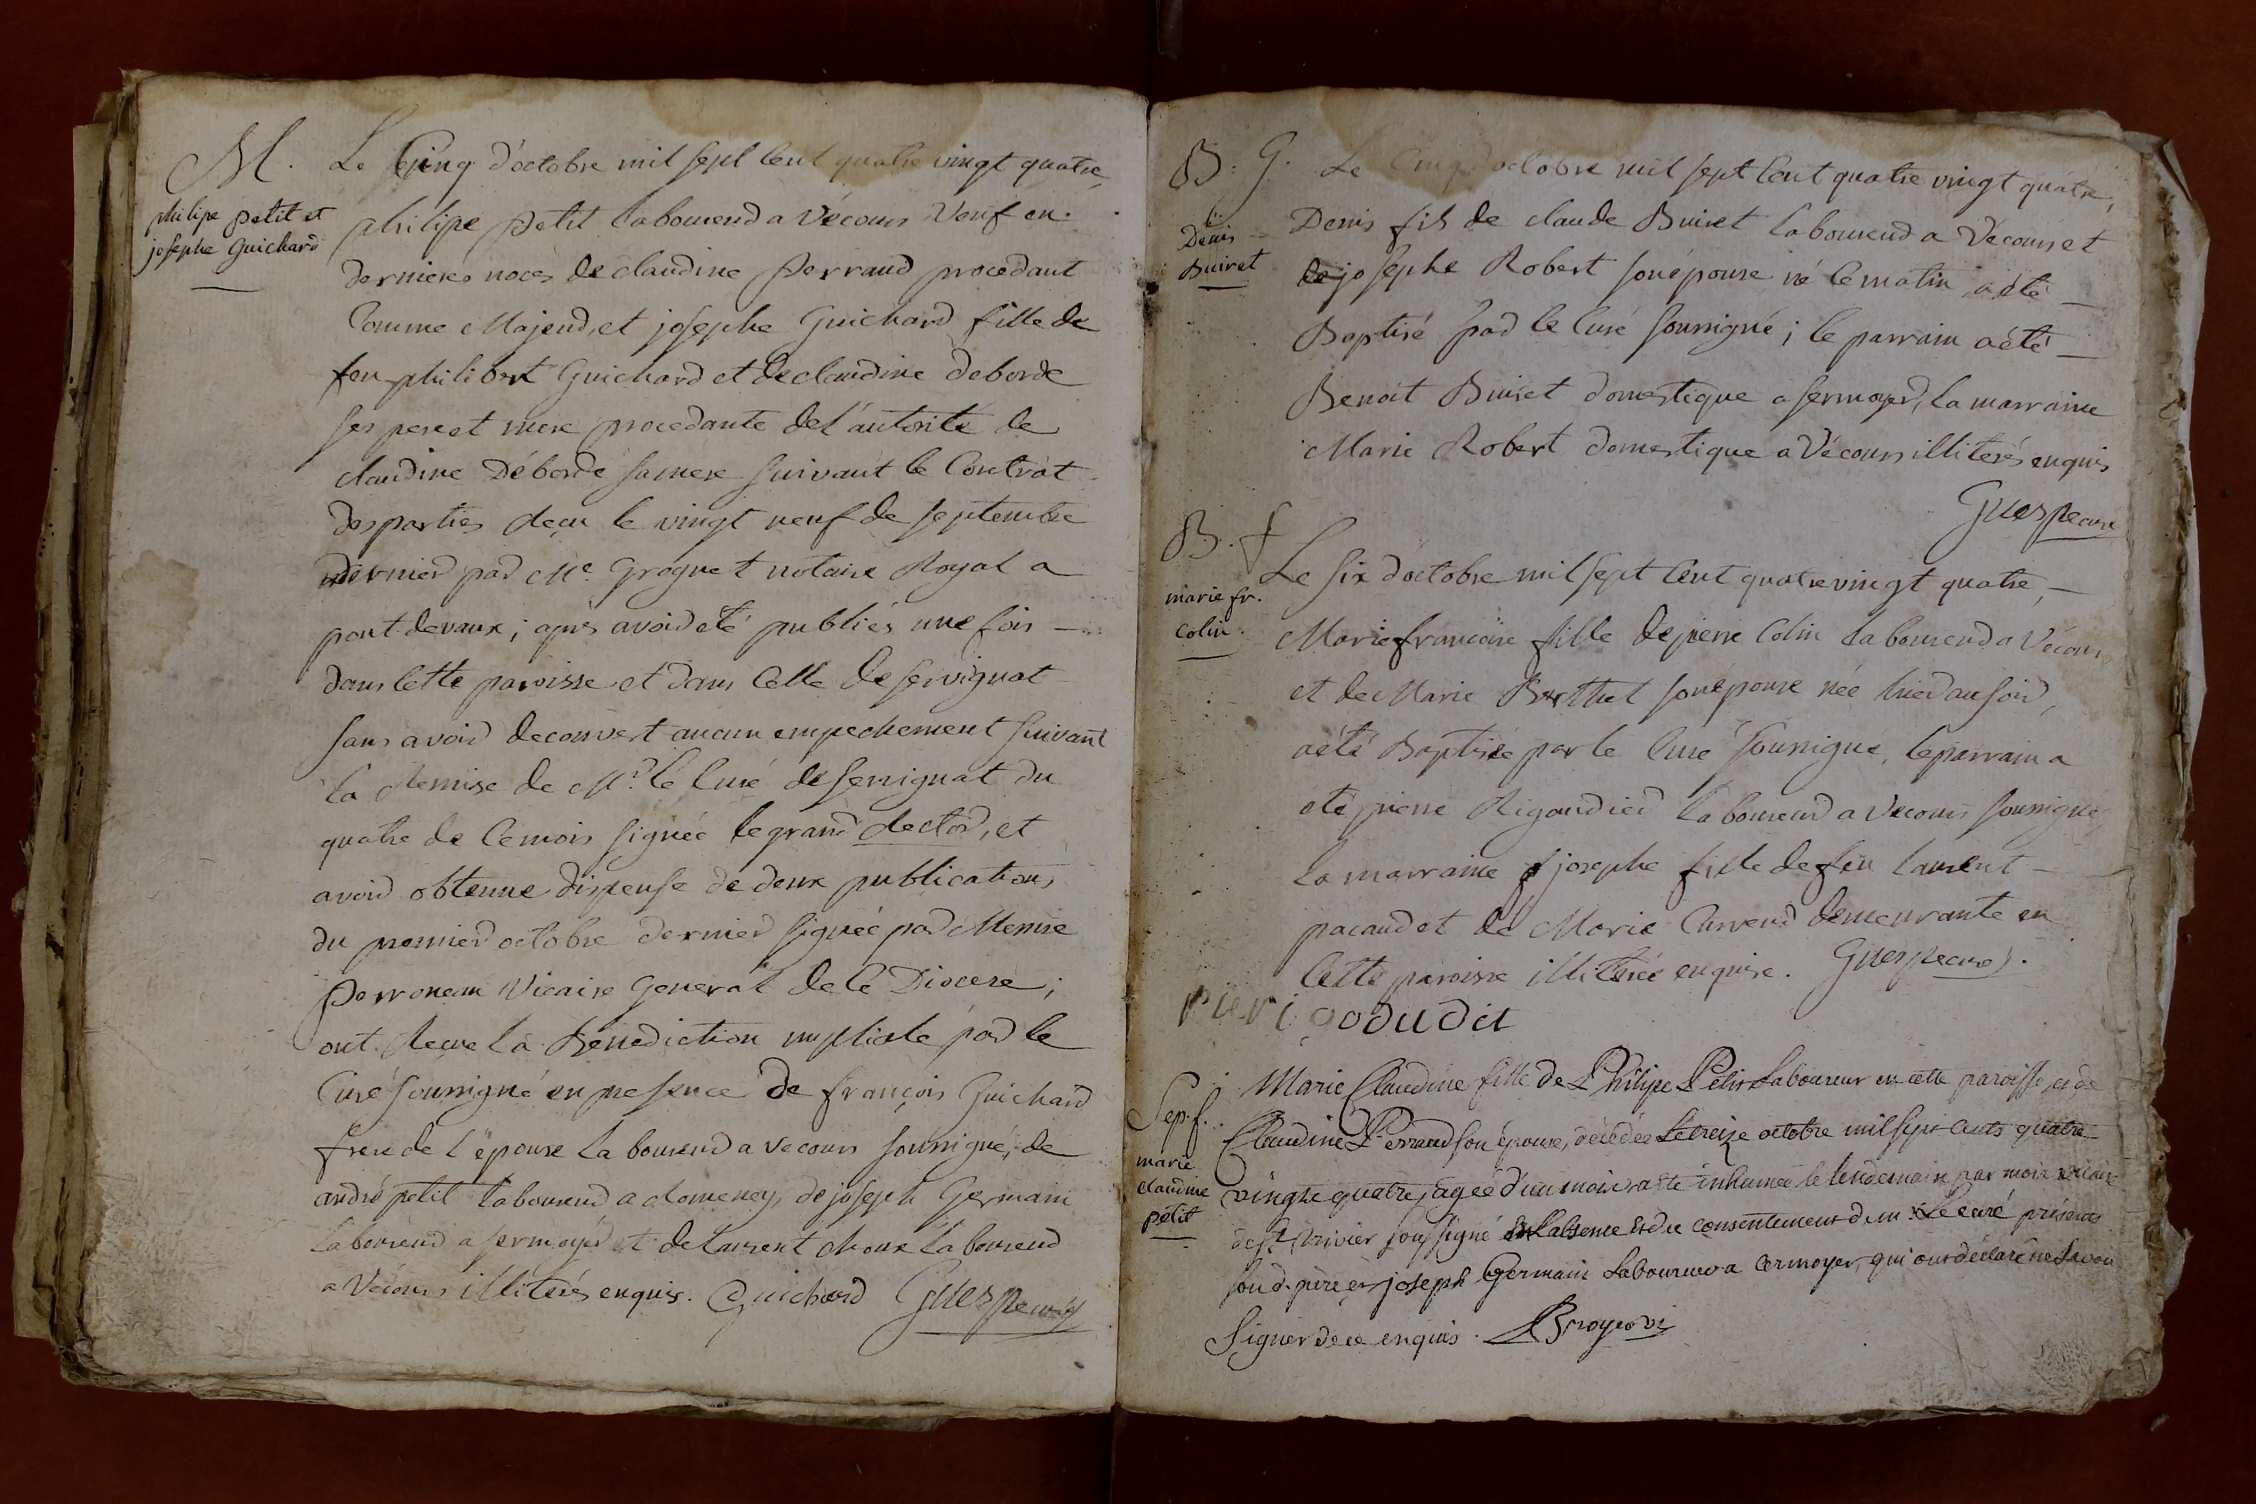 M.
philipe petit et
josephe Guichard
Le Cinq d'octobre mil sept Cent quatre vingt quatre,
philipe petit laboureur a Vécours Veuf en
dernieres noces de claudine Perraud procedant
Comme Majeur, et josephe Guichard fille de
feu philibert Guichard et de claudine deborde
ses pere et mere procedante de l'autorité de
claudine Déborde sa mere suivant le Contrat
des parties reçu le vingt neuf de septembre
dernier par Me. Grognet notaire Royal a
pont-devaux; après avoir eté publiés une fois —
dans Cette paroisse et dans Celle de servignat
sans avoir decouvert aucun empechement suivant
la Remise de Mr. le Curé de servignat du
quatre de Ce mois signée legrand Rector, et
avoir obtenue dispense de deux publications
du premier octobre dernier signée par Messire
Perroneau Vicaire General de Ce Diocese;
ont Reçue la Bénédiction nuptiale par le
Curé soussigné en presence de françois Guichard
frere de l'épouse laboureur a vecours soussigné, de
andré petit laboureur a Romeney, de joseph Germain
laboureur a sermoyer et de laurent choux laboureur
a Vécours illiterés enquis. Guichard Guespe curé
B. G.
Denis
Buiret
Le Cinq d'octobre mil sept Cent quatre vingt quatre,
Denis fils de claude Buiret laboureur a Vécours et
de josephe Robert son épouse né le matin a été —
Baptisé par le Curé soussigné; le parrain a été —
Benoit Buiret domestique a sermoyer, la marraine
Marie Robert domestique a Vécours illiterés enquis
Guespe curé
B. f
marie fr.
Colin.
Le six d'octobre mil sept Cent quatre vingt quatre, —
Marie francoise fille de pierre Colin laboureur a Vécours
et de Marie Berthet son épouse née hier au soir,
a été Baptisée par le Curé soussigné, le parrain a
eté pierre Rigaudier laboureur a Vecours soussigné,
la marraine josephe fille de feu laurent —
pacaud et de Marie demeurante en
Cette paroisse illiterée enquise. Guespe curé.
Sep. f.
marie
claudine
petit
Marie Claudine fille de Philipe Petit Laboureur en cette paroisse, et de
Claudine Perraud son épouse, décédée le treize octobre mil sept cents quatre
vingts quatre, agée d'un mois, a été inhumée le lendemain par moi vicaire
de St. Trivier soussigné en l'absence et du consentement de m. le curé présents
son d. père et joseph Germain Laboureur a cermoyer, qui ont déclaré ne savoir
Signer de ce enquis. Broyer vi